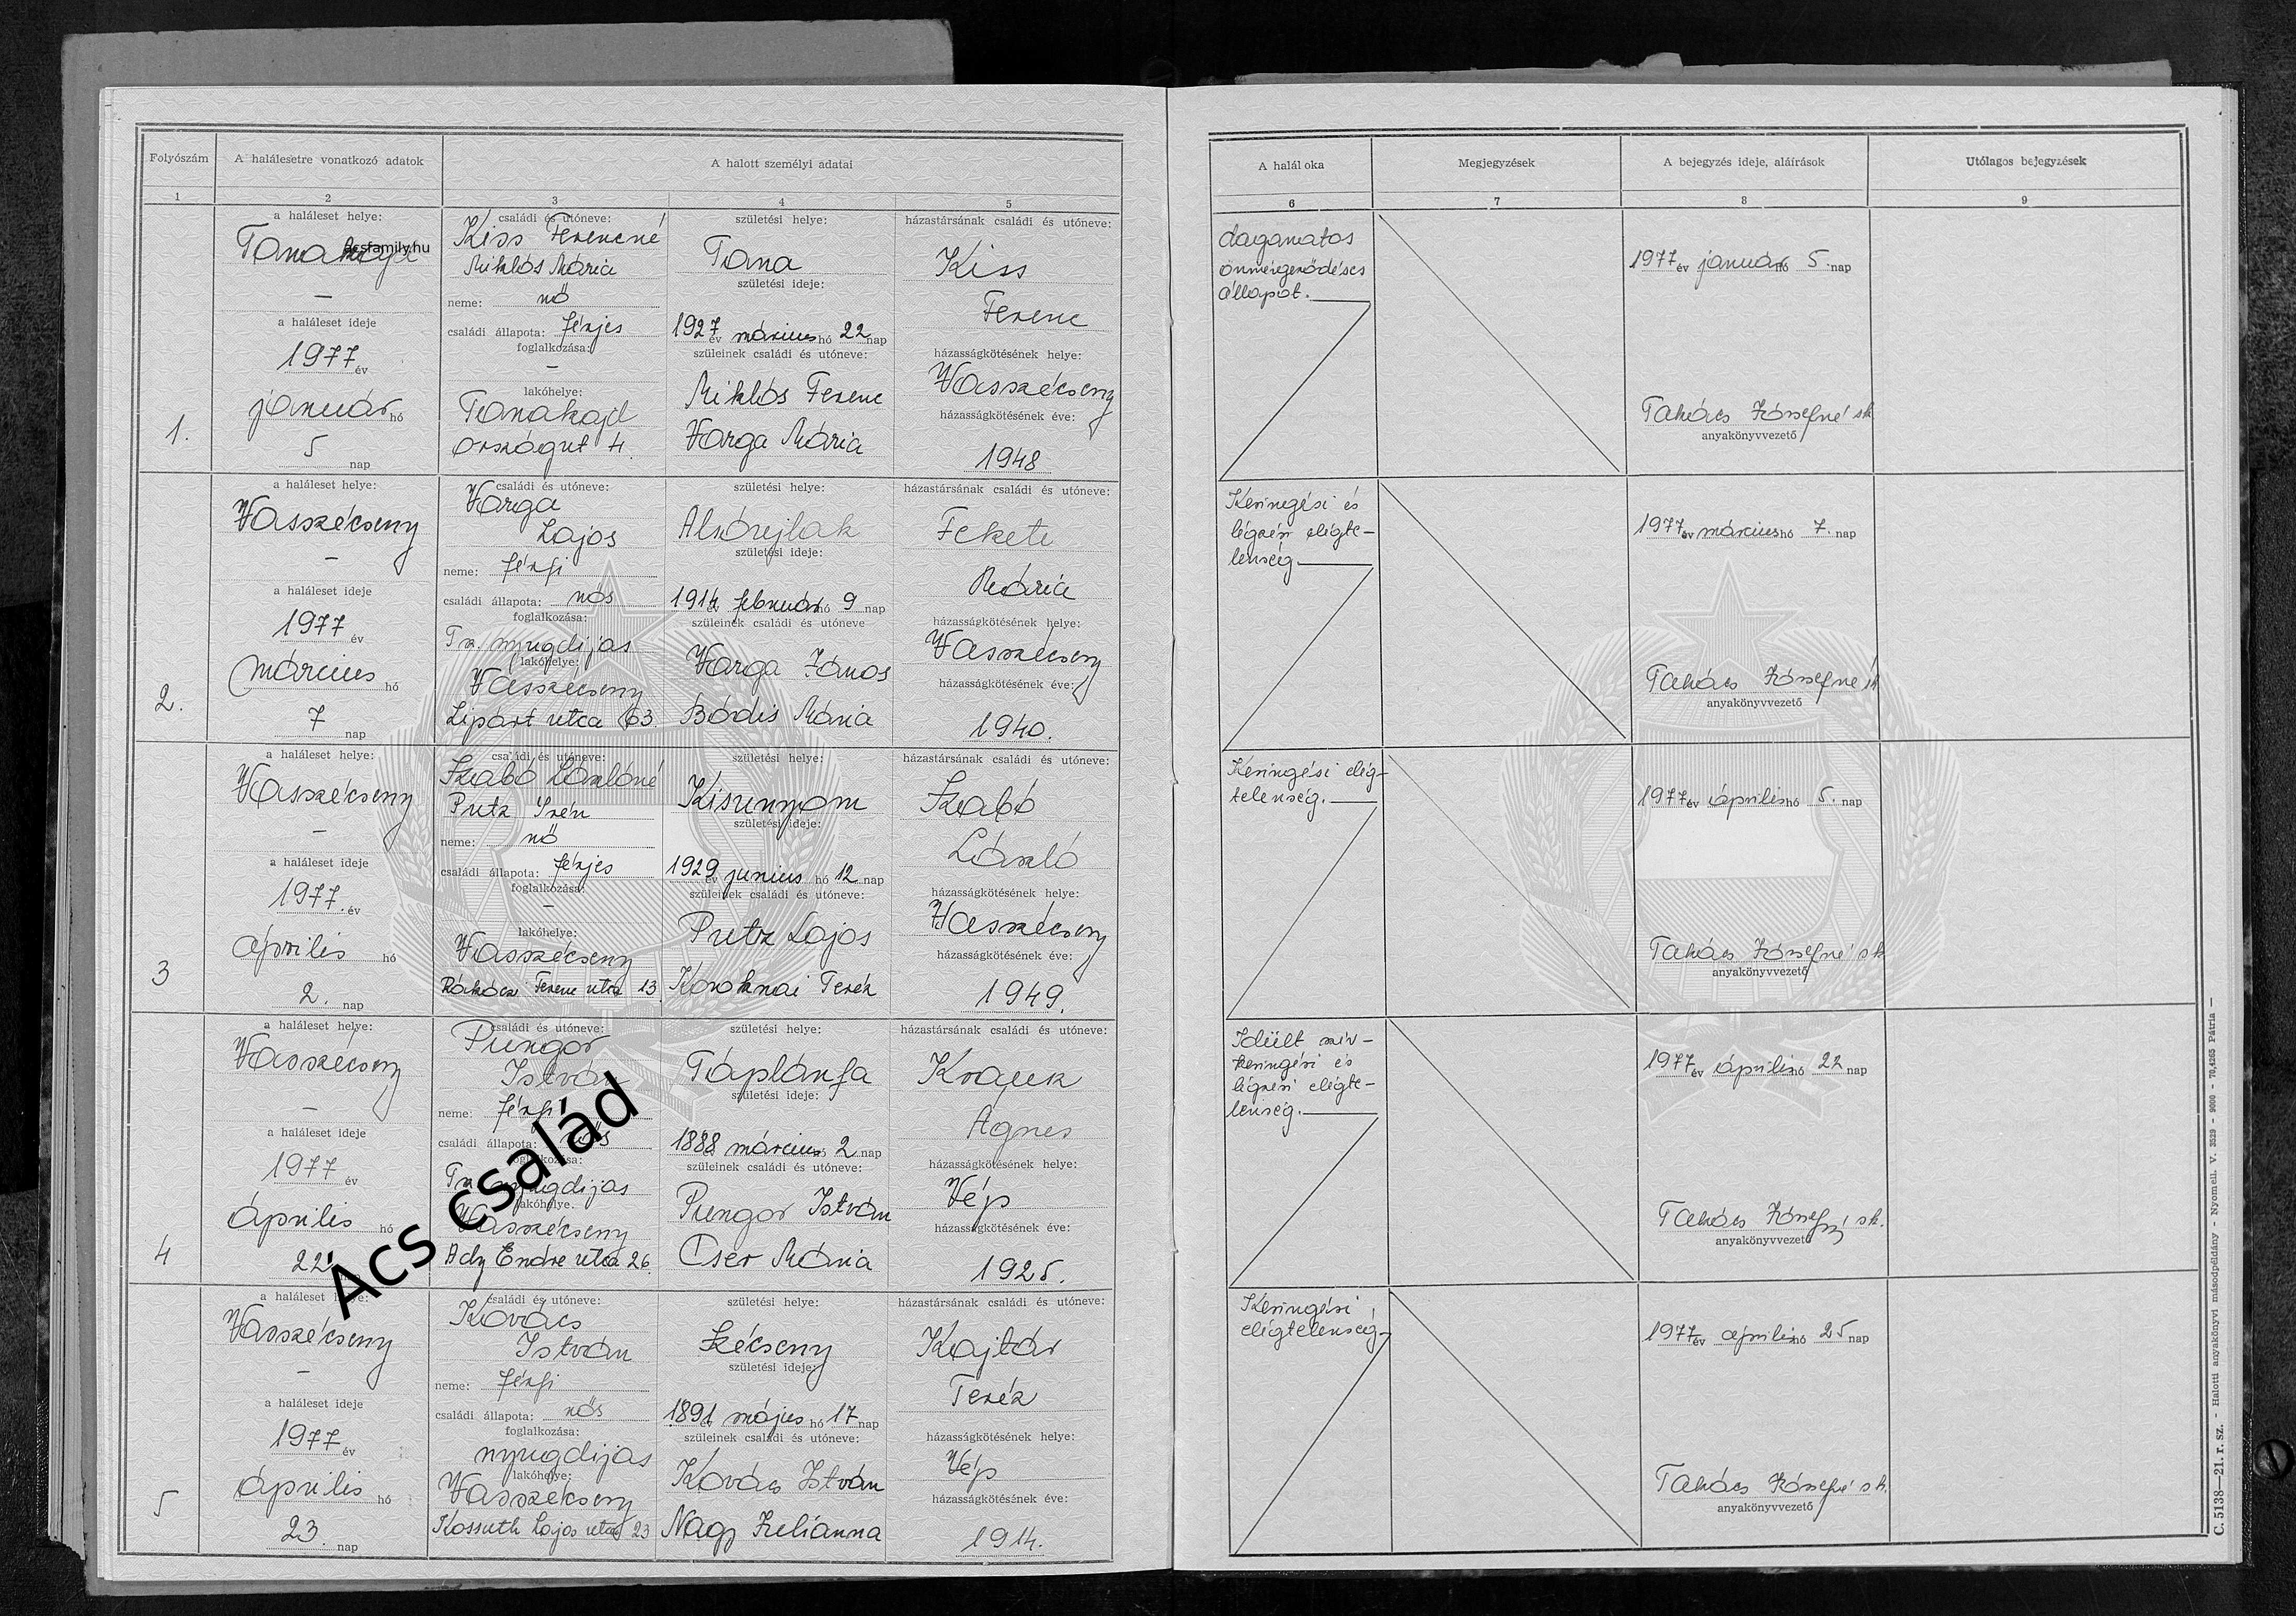 Folyószám
A halálesetre vonatkozó adatok
A halott személyi adatai
1
2
3
4
5
a haláleset helye:
Tanakajd
acsfamily.hu
—
a haláleset ideje
1977 év
január hó
5 nap
1.
családi és utóneve:
Kiss Ferencné
Miklós Mária
neme: nő
családi állapota: férjes
foglalkozása:
—
lakóhelye:
Tanakajd
Országut 4.
születési helye:
Tana
születési ideje:
1927 év március hó 22 nap
szüleinek családi és utóneve:
Miklós Ferenc
Varga Mária
házastársának családi és utóneve:
Kiss
Ferenc
házasságkötésének helye:
Vasszécseny
házasságkötésének éve:
1948
a haláleset helye:
Vasszécseny
—
a haláleset ideje
1977 év
március hó
7 nap
2.
családi és utóneve:
Varga
Lajos
neme: férfi
családi állapota: nős
foglalkozása:
Tsz. nyugdijas
lakóhelye:
Vasszécseny
Lipárt utca 63.
születési helye:
Alsóújlak
születési ideje:
1914 év február hó 9 nap
szüleinek családi és utóneve
Varga János
Bördis Mária
házastársának családi és utóneve:
Fekete
Mária
házasságkötésének helye:
Vasszécseny
házasságkötésének éve:
1940.
a haláleset helye:
Vasszécseny
—
a haláleset ideje
1977. év
április hó
2. nap
3
családi és utóneve:
Szabó Lászlóné
Putz Irén
neme: nő
családi állapota: férjes
foglalkozása:
—
lakóhelye:
Vasszécseny
Rákóczi Ferenc utca 13.
születési helye:
Kisunyom
születési ideje:
1929 év junius hó 12 nap
szüleinek családi és utóneve:
Putz Lajos
Koroknai Teréz
házastársának családi és utóneve:
Szabó
László
házasságkötésének helye:
Vasszécseny
házasságkötésének éve:
1949.
a haláleset helye:
Vasszécseny
—
a haláleset ideje
1977 év
április hó
22
4
családi és utóneve:
Pungor
István
neme: férfi
családi állapota: nős
foglalkozása:
Tsz. nyugdijas
lakóhelye:
Vasszécseny
Ady Endre utca 26.
születési helye:
Táplánfa
születési ideje:
1888 március 2 nap
szüleinek családi és utóneve:
Pungor István
Cser Mária
házastársának családi és utóneve:
Krajczk
Ágnes
házasságkötésének helye:
Vép
házasságkötésének éve:
1925.
Ács család
a haláleset helye:
Vasszécseny
—
a haláleset ideje
1977 év
április hó
23. nap
5
családi és utóneve:
Kovács
István
neme: férfi
családi állapota: nős
foglalkozása:
nyugdijas
lakóhelye:
Vasszécseny
Kossuth Lajos utca 23
születési helye:
Szécseny
születési ideje:
1891 év május hó 17 nap
szüleinek családi és utóneve:
Kovács István
Nagy Julianna
házastársának családi és utóneve:
Kajtár
Teréz
házasságkötésének helye:
Vép
házasságkötésének éve:
1914.
A halál oka
Megjegyzések
A bejegyzés ideje, aláírások
Utólagos bejegyzések
6
7
8
9
daganatos
önmérgeződéses
állapot.
1977 év január hó 5. nap
Takács Józsefné sk
anyakönyvvezető
Keringési és
légzési elégte-
lenség.
1977 év március hó 7. nap
Takács Józsefné sk
anyakönyvvezető
Keringési elég-
telenség.
1977 év április hó 5. nap
Takács Józsefné sk
anyakönyvvezető
Idült sziv-
keringési és
légzési elégte-
lenség.
1977 év április hó 22 nap
Takács Józsefné sk.
anyakönyvvezető
Keringési
elégtelenség.
1977 év április hó 25 nap
Takács Józsefné sk.
anyakönyvvezető
C. 5138—21. r. sz. - Halotti anyakönyvi másodpéldány - Nyomell. V. 3529 - 9000 - 70,4265 Pátria —